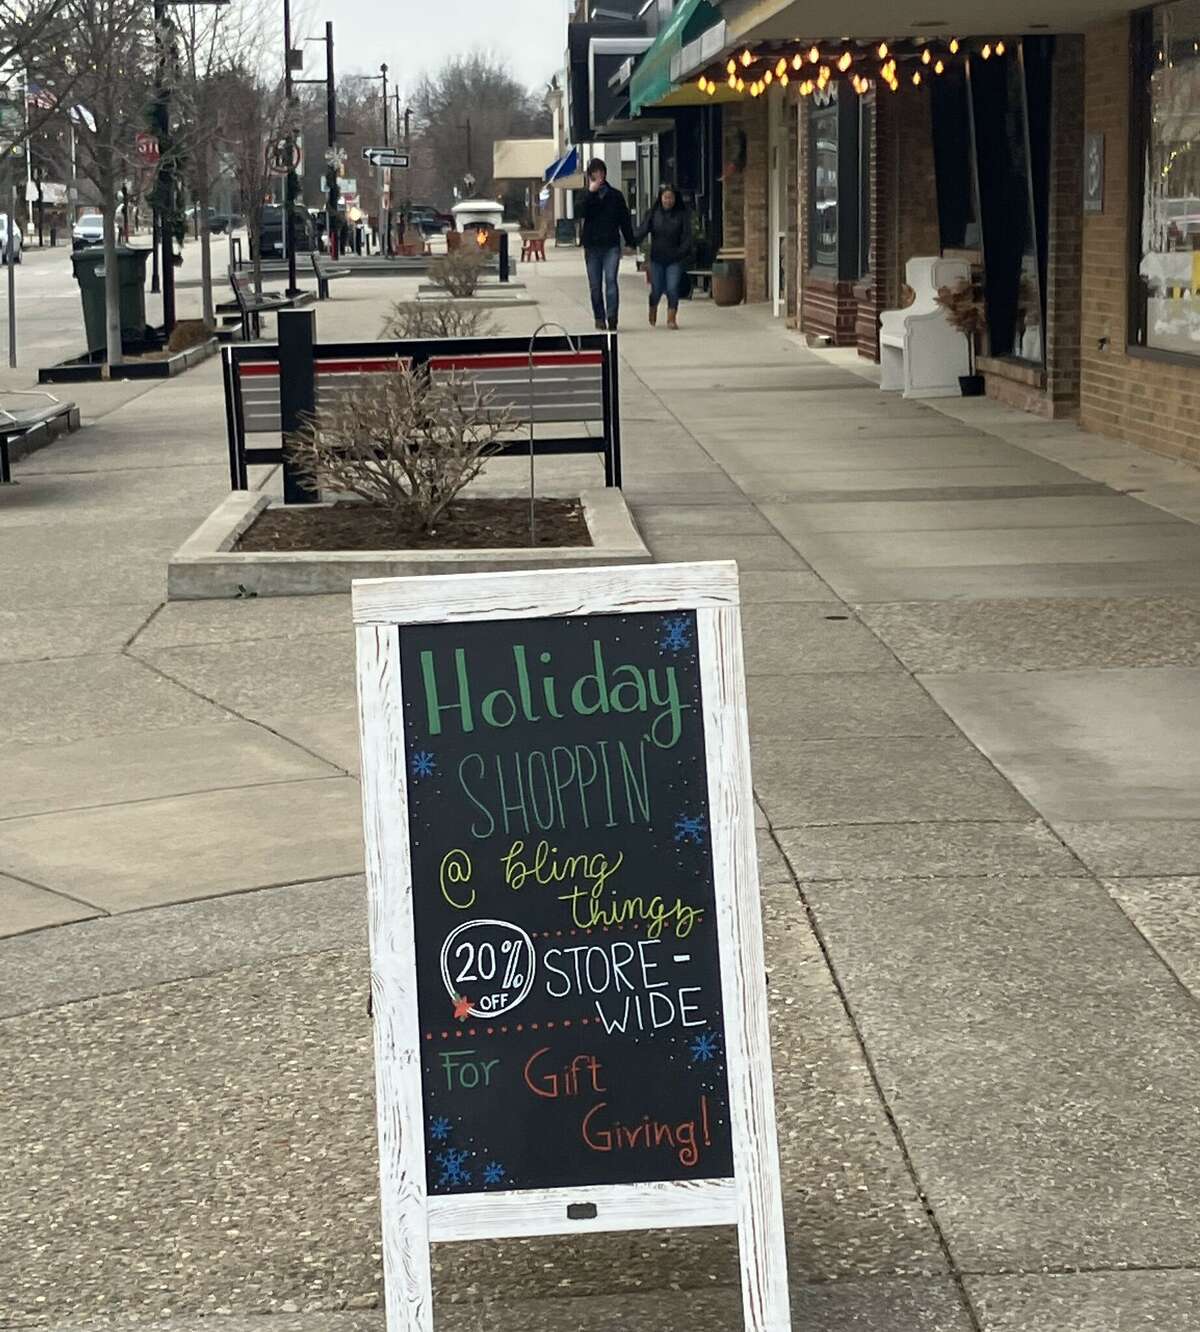 Holiday
SHOPPIN'
@ bling
thingy
20% STORE-
OFF WIDE
For Gift
Giving!